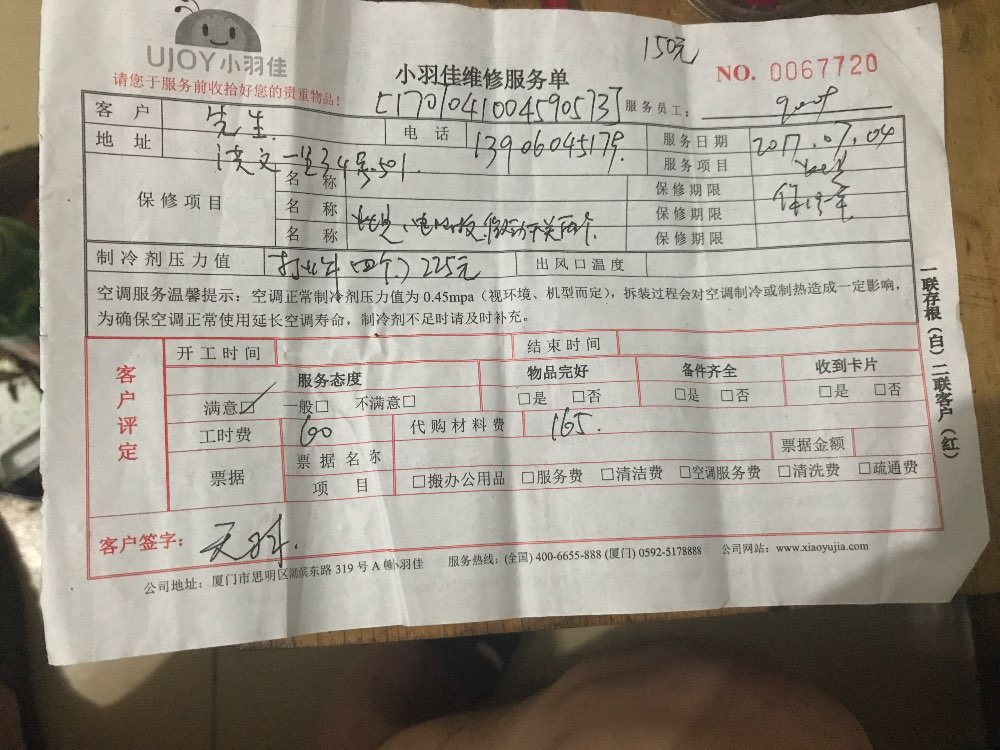 150元
UJOY小羽佳
小羽佳维修服务单
NO. 0067720
请您于服务前收拾好您的贵重物品！
[1701041004590573]
服务员工：
客户 先生
电话 13906045179.
服务日期 2017.07.04
地址
服务项目
保修项目
名称
保修期限
名称 电脑板.微动开关两个.
保修期限
名称
保修期限
制冷剂压力值 (四个) 225元
出风口温度
空调服务温馨提示：空调正常制冷剂压力值为 0.45mpa（视环境、机型而定），拆装过程会对空调制冷或制热造成一定影响，
为确保空调正常使用延长空调寿命，制冷剂不足时请及时补充。
一联存根（白）二联客户（红）
客户评定
开工时间
结束时间
服务态度
物品完好
备件齐全
收到卡片
满意☑ 一般□ 不满意□
□是 □否
□是 □否
□是 □否
工时费 60
代购材料费 165.
票据
票据名称
票据金额
项目
□搬办公用品 □服务费 □清洁费 □空调服务费 □清洗费 □疏通费
客户签字：
公司地址：厦门市思明区湖滨东路 319 号 A 幢小羽佳
服务热线：(全国) 400-6655-888 (厦门) 0592-5178888
公司网站：www.xiaoyujia.com